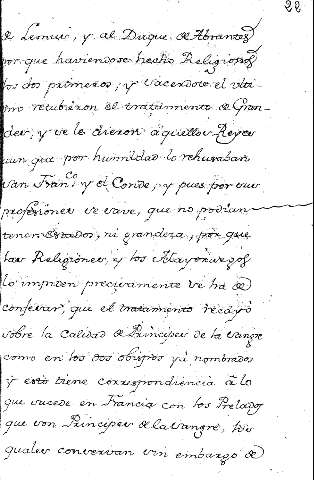 22
de Lemus, y al Duque de Abrantes
por que haviendose hecho Religiosos
los dos primeros, y sacerdote el ulti-
mo retubieron el tratamiento de Gran-
des, y se le dieron aquellos Reyes
aun que por humildad lo rehusaban
San Fran.co y el Conde, y pues por sus
profesiones se save, que no podian
tener Estados, ni grandeza, por que
las Religiones, y los Mayorazgos
lo impiden precisamente se ha de
confesar, que el tratamiento recayó
sobre la Calidad de Principes de la sangre
como en los dos obispos yá nombrados
y esto tiene correspondiencia á lo
que sucede en Francia con los Prelados
que son Principes de la Sangre, los
quales conservan sin embargo de